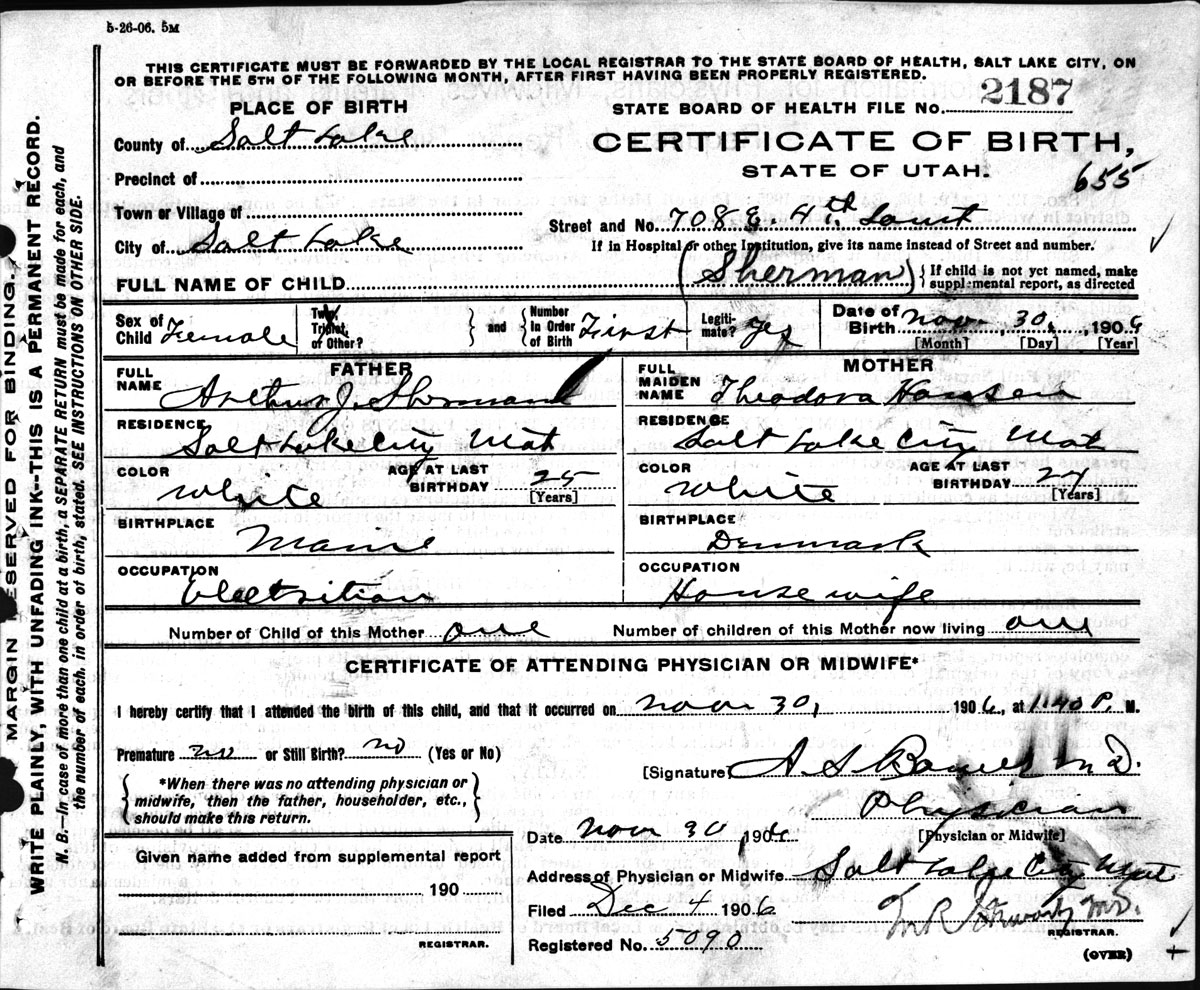 5-26-06. 5M
THIS CERTIFICATE MUST BE FORWARDED BY THE LOCAL REGISTRAR TO THE STATE BOARD OF HEALTH, SALT LAKE CITY, ON
OR BEFORE THE 5TH OF THE FOLLOWING MONTH, AFTER FIRST HAVING BEEN PROPERLY REGISTERED.
PLACE OF BIRTH
STATE BOARD OF HEALTH FILE No. 2187
County of Salt Lake
CERTIFICATE OF BIRTH,
STATE OF UTAH.
655
Precinct of
Town or Village of
Street and No. 708 E. 4th South
City of Salt Lake
If in Hospital or other Institution, give its name instead of Street and number.
FULL NAME OF CHILD (Sherman)
If child is not yet named, make
supplemental report, as directed
Sex of Child Female
Twin, Triplet, or Other?
and
Number in Order of Birth First
Legiti-mate? Yes
Date of Birth Nov. 30, 1906
[Month] [Day] [Year]
FATHER
FULL NAME Arthur J. Sherman
RESIDENCE Salt Lake City Utah
COLOR White
AGE AT LAST BIRTHDAY 25
[Years]
BIRTHPLACE Maine
OCCUPATION Electrition
MOTHER
FULL MAIDEN NAME Theodora Hansen
RESIDENCE Salt Lake City Utah
COLOR White
AGE AT LAST BIRTHDAY
[Years]
BIRTHPLACE Denmark
OCCUPATION Housewife
Number of Child of this Mother one
Number of children of this Mother now living one
CERTIFICATE OF ATTENDING PHYSICIAN OR MIDWIFE*
I hereby certify that I attended the birth of this child, and that it occurred on Nov 30, 1906, at 11:40 P. M.
Premature no or Still Birth? no (Yes or No)
*When there was no attending physician or
midwife, then the father, householder, etc.,
should make this return.
[Signature] A S M D.
Physician
[Physician or Midwife]
Date Nov 30 1906
Address of Physician or Midwife Salt Lake City Utah
Filed Dec 4 1906
M.D.
REGISTRAR.
Registered No. 5090
(OVER)
Given name added from supplemental report
190
REGISTRAR.
MARGIN RESERVED FOR BINDING.
WRITE PLAINLY, WITH UNFADING INK--THIS IS A PERMANENT RECORD.
N. B.—In case of more than one child at a birth, a SEPARATE RETURN must be made for each, and
the number of each, in order of birth, stated. SEE INSTRUCTIONS ON OTHER SIDE.